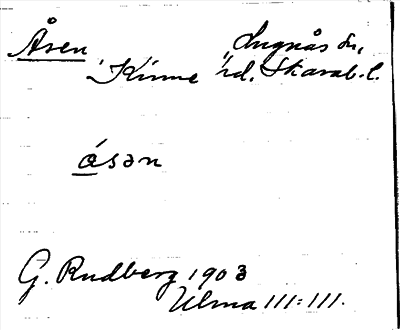 Åsen Lugnås sn,
Kinne hd. Skarab. l.
ásən
G. Rudberg 1903
Ulma 111:111.